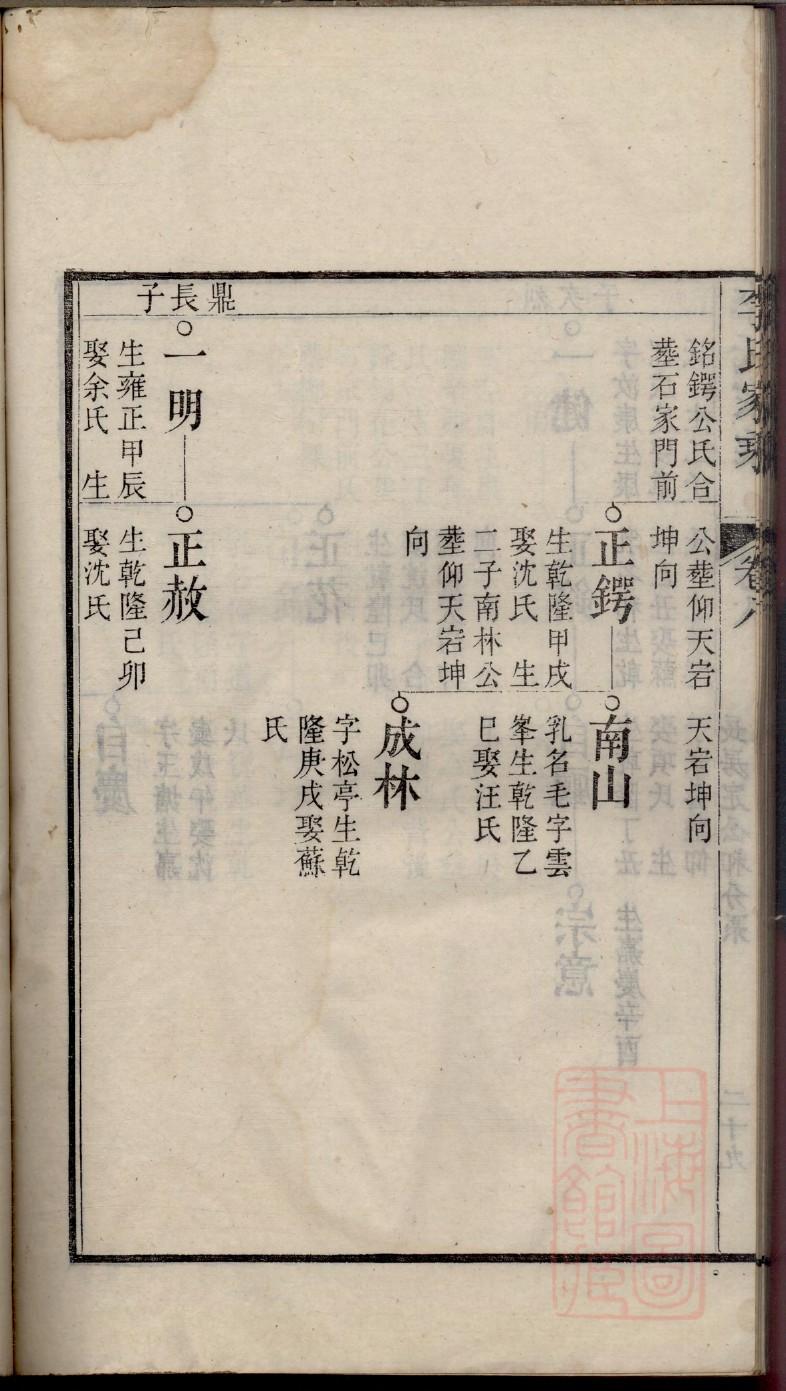 李氏家乘
卷八
銘鍔公氏合
塟石家門前
公塟仰天岩
坤向
天岩坤向
正鍔
生乾隆甲戌
娶沈氏　生
二子南林公
塟仰天岩坤
向
南山
乳名毛字雲
峯生乾隆乙
巳娶汪氏
成林
字松亭生乾
隆庚戌娶蘇
氏
鼎長子
一明
生雍正甲辰
娶余氏　生
正赦
生乾隆己卯
娶沈氏
上海圖
書館藏